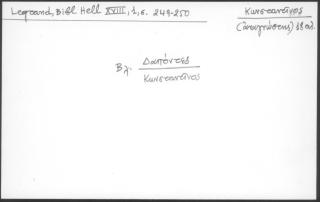 Legrand, Bibl Hell XVIII, 1, σ. 249-250
Κωνσταντῖνος
(ἀναγνώστης) 18 αἰ.
Βλ. Δαπόντες
Κωνσταντῖνος